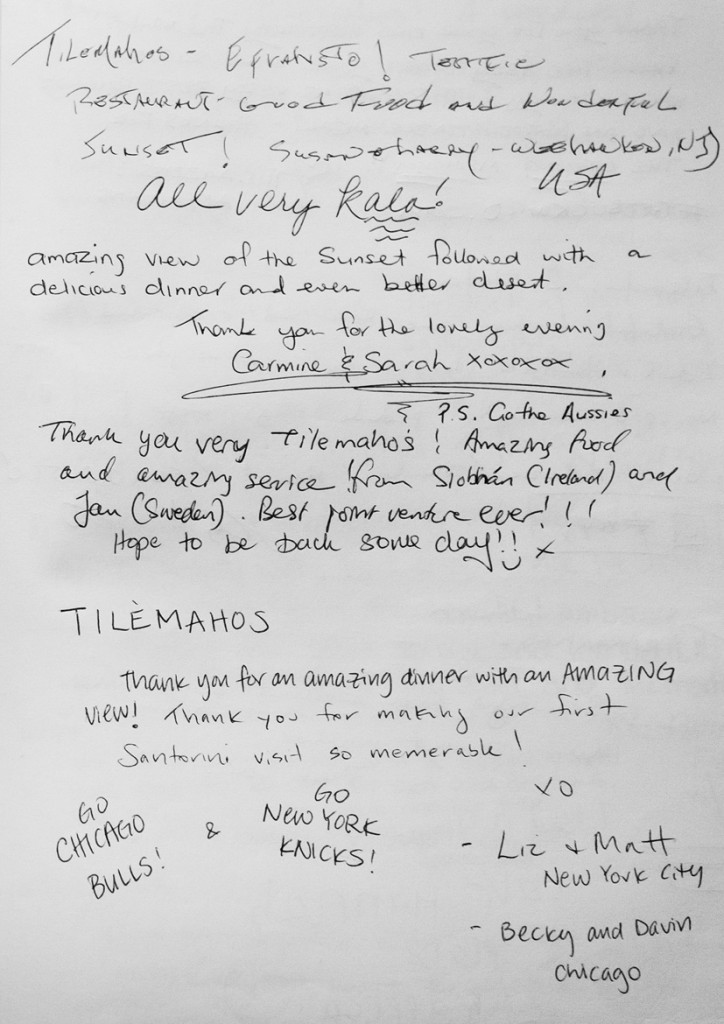 Tilemahos - Efransto! Terrific
Restaurant - Good Food and Wonderful
Sunset! Susan & Harry - Weehawken, NJ
USA
All very kala!
amazing view of the Sunset followed with a
delicious dinner and even better desert.
Thank you for the lovely evening
Carmine & Sarah xoxoxox.
P.S. Go the Aussies
Thank you very Tilemahos! Amazing food
and amazing service! from Siobhán (Ireland) and
Jan (Sweden). Best point venture ever!!!
Hope to be back some day!! x
TILÈMAHOS
Thank you for an amazing dinner with an AMAZING
view! Thank you for making our first
Santorini visit so memerable!
XO
GO
CHICAGO
BULLS!
&
GO
NEW YORK
KNICKS!
- Liz + Matt
New York City
- Becky and Davin
Chicago